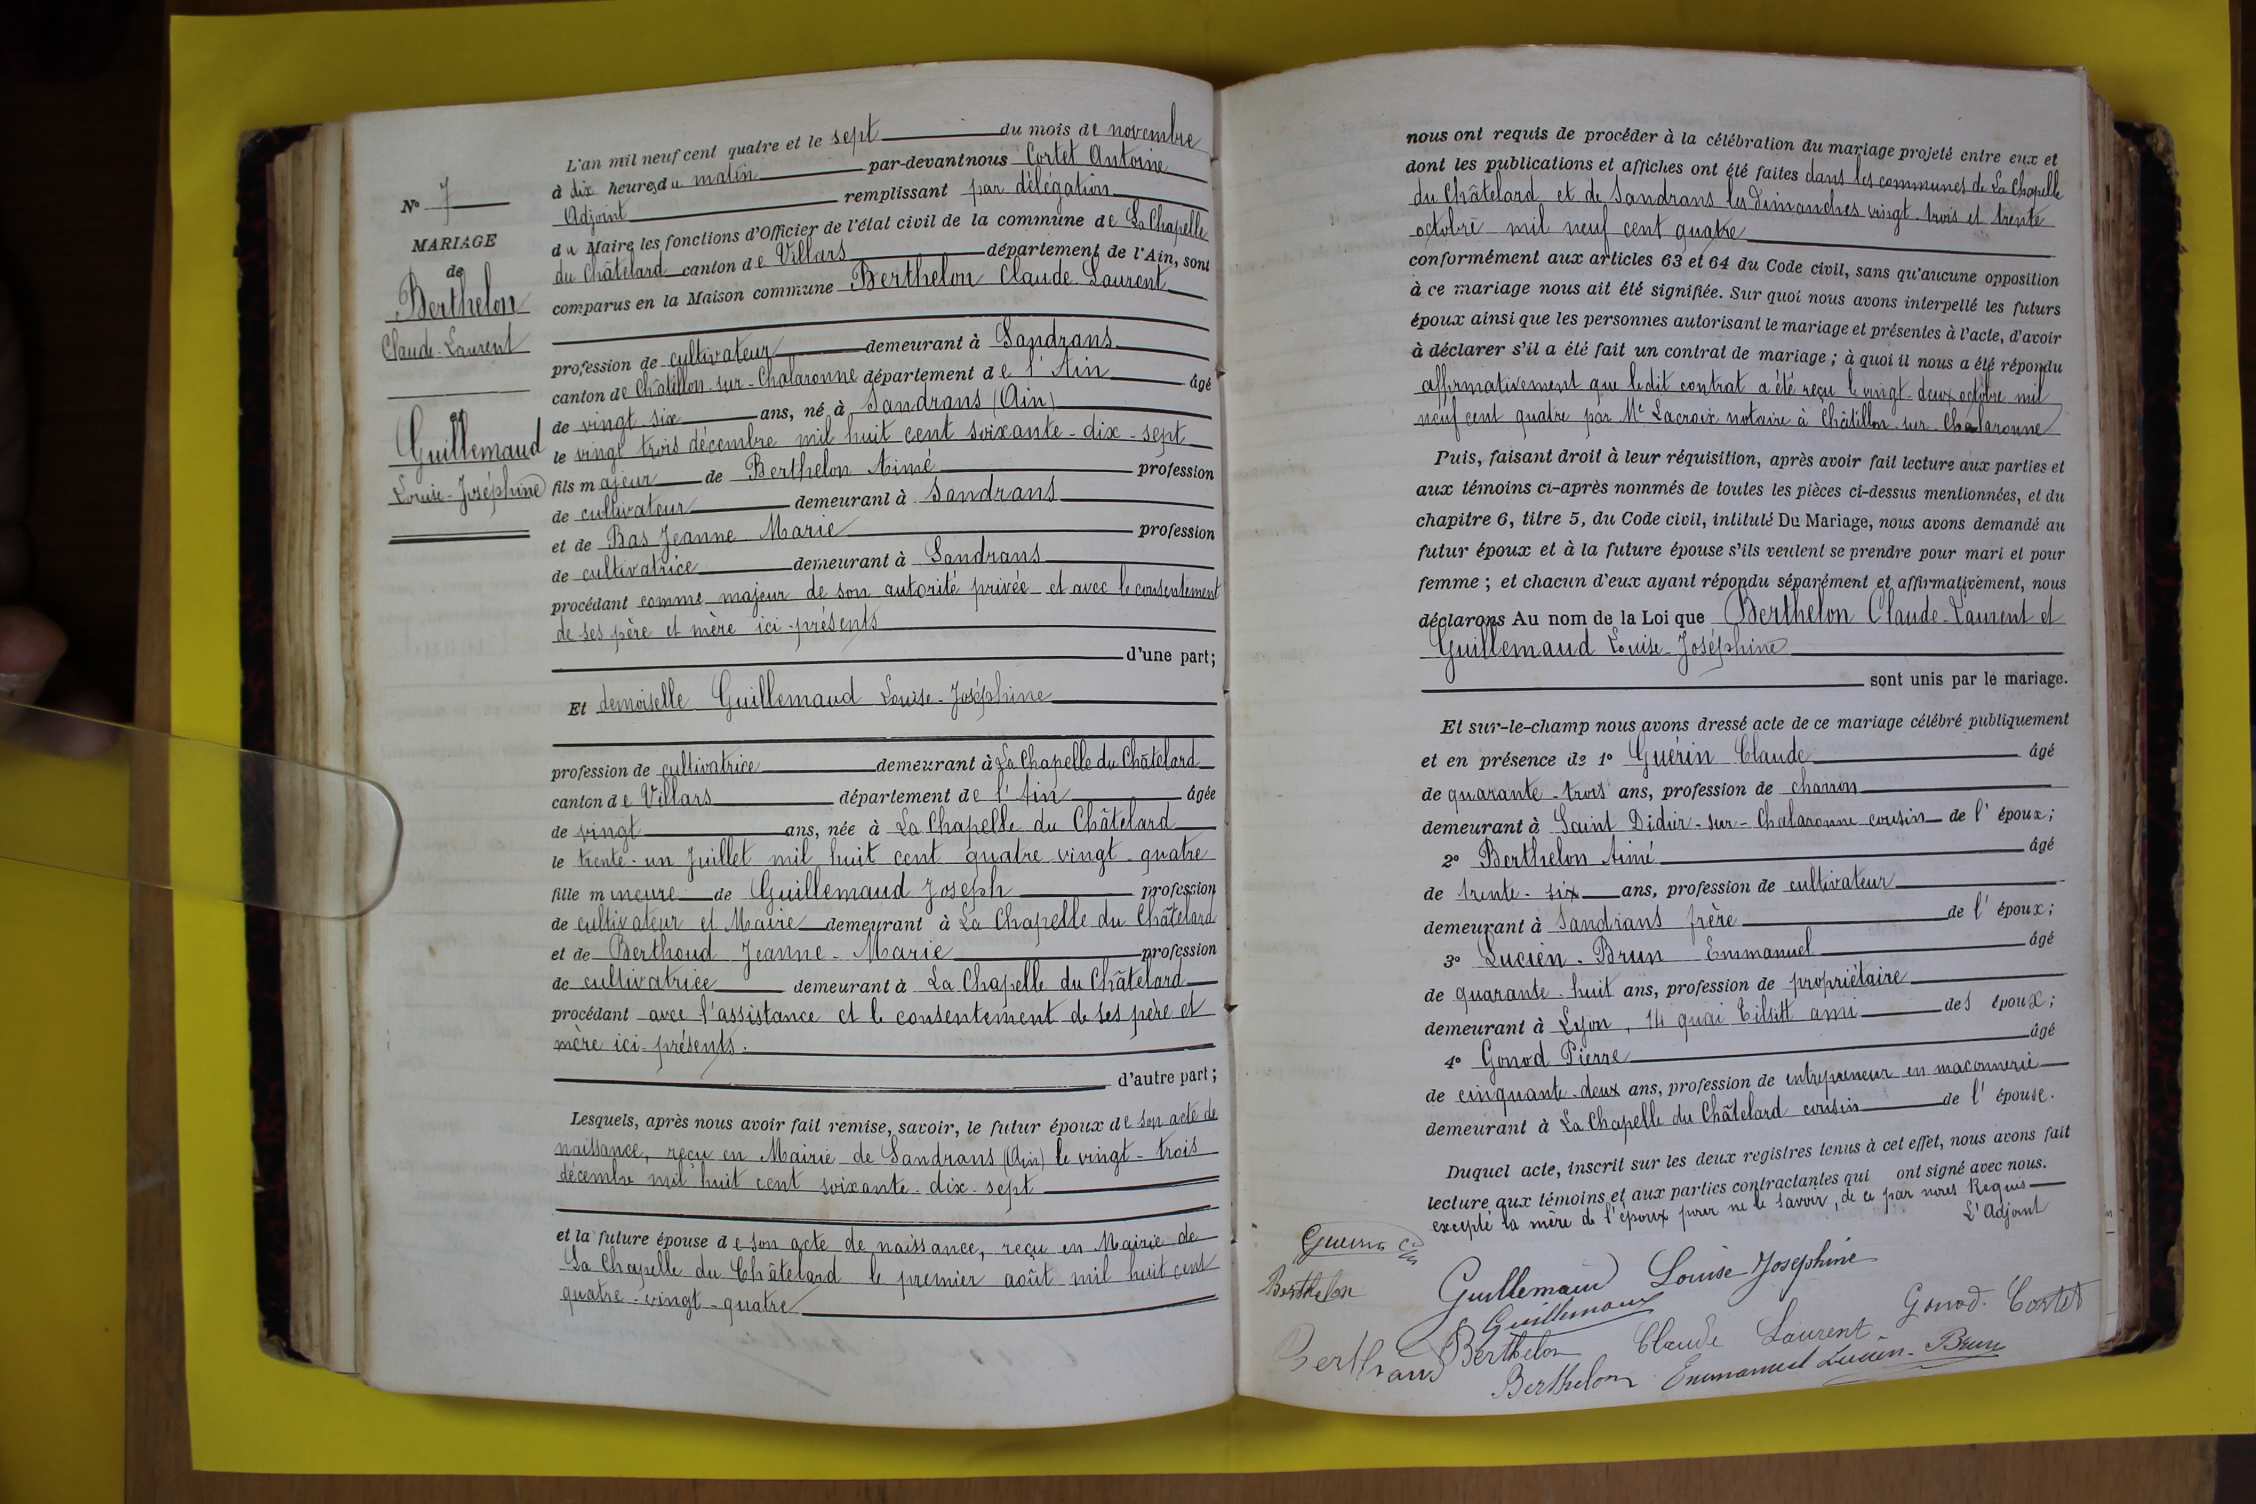 N° 7
MARIAGE
de
Berthelon
Claude-Laurent
et
Guillemaud
Louise-Joséphine
L'an mil neuf cent quatre et le sept du mois de novembre
à dix heures du matin par-devant nous Cortet Antoine
Adjoint remplissant par délégation
du Maire les fonctions d'Officier de l'état civil de la commune de La Chapelle
du Châtelard canton de Villars département de l'Ain, sont
comparus en la Maison commune Berthelon Claude-Laurent
profession de cultivateur demeurant à Sandrans
canton de Châtillon-sur-Chalaronne département de l'Ain âgé
de vingt-six ans, né à Sandrans (Ain)
le vingt trois décembre mil huit cent soixante-dix-sept
fils majeur de Berthelon Aimé profession
de cultivateur demeurant à Sandrans
et de Bas Jeanne Marie profession
de cultivatrice demeurant à Sandrans
procédant comme majeur de son autorité privée et avec le consentement
de ses père et mère ici-présents
d'une part;
Et demoiselle Guillemaud Louise-Joséphine
profession de cultivatrice demeurant à La Chapelle du Châtelard
canton de Villars département de l'Ain âgée
de vingt ans, née à La Chapelle du Châtelard
le trente-un Juillet mil huit cent quatre-vingt-quatre
fille mineure de Guillemaud Joseph profession
de cultivateur et Maire demeurant à La Chapelle du Châtelard
et de Berthoud Jeanne-Marie profession
de cultivatrice demeurant à La Chapelle du Châtelard
procédant avec l'assistance et le consentement de ses père et
mère ici-présents.
d'autre part;
Lesquels, après nous avoir fait remise, savoir, le futur époux de son acte de
naissance, reçu en Mairie de Sandrans (Ain) le vingt-trois
décembre mil huit cent soixante-dix-sept
et la future épouse de son acte de naissance, reçu en Mairie de
La Chapelle du Châtelard le premier août mil huit cent
quatre-vingt-quatre
nous ont requis de procéder à la célébration du mariage projeté entre eux et
dont les publications et affiches ont été faites dans les communes de La Chapelle
du Châtelard et de Sandrans les dimanches vingt-trois et trente
octobre mil neuf cent quatre
conformément aux articles 63 et 64 du Code civil, sans qu'aucune opposition
à ce mariage nous ait été signifiée. Sur quoi nous avons interpellé les futurs
époux ainsi que les personnes autorisant le mariage et présentes à l'acte, d'avoir
à déclarer s'il a été fait un contrat de mariage; à quoi il nous a été répondu
affirmativement que ledit contrat a été reçu le vingt-deux octobre mil
neuf cent quatre par Me Lacroix notaire à Châtillon-sur-Chalaronne
Puis, faisant droit à leur réquisition, après avoir fait lecture aux parties et
aux témoins ci-après nommés de toutes les pièces ci-dessus mentionnées, et du
chapitre 6, titre 5, du Code civil, intitulé Du Mariage, nous avons demandé au
futur époux et à la future épouse s'ils veulent se prendre pour mari et pour
femme; et chacun d'eux ayant répondu séparément et affirmativement, nous
déclarons Au nom de la Loi que Berthelon Claude-Laurent et
Guillemaud Louise-Joséphine
sont unis par le mariage.
Et sur-le-champ nous avons dressé acte de ce mariage célébré publiquement
et en présence de 1° Guérin Claude âgé
de quarante-trois ans, profession de charron
demeurant à Saint Didier-sur-Chalaronne cousin de l'époux;
2° Berthelon Aimé âgé
de trente-six ans, profession de cultivateur
demeurant à Sandrans frère de l'époux;
3° Lucien-Brun Emmanuel âgé
de quarante-huit ans, profession de propriétaire
demeurant à Lyon, 14 quai Tilsitt ami des époux;
4° Gonod Pierre âgé
de cinquante-deux ans, profession de entrepreneur en maçonnerie
demeurant à La Chapelle du Châtelard cousin de l'épouse.
Duquel acte, inscrit sur les deux registres tenus à cet effet, nous avons fait
lecture aux témoins et aux parties contractantes qui ont signé avec nous.
excepté la mère de l'époux pour ne le savoir, de ce par nous Requis
L'Adjoint
Guerin Cd
Guillemaud Louise-Joséphine
Berthelon
Guillemaud
Gonod. Cortet
Berthoud Berthelon Claude Laurent
Berthelon Emmanuel Lucien-Brun